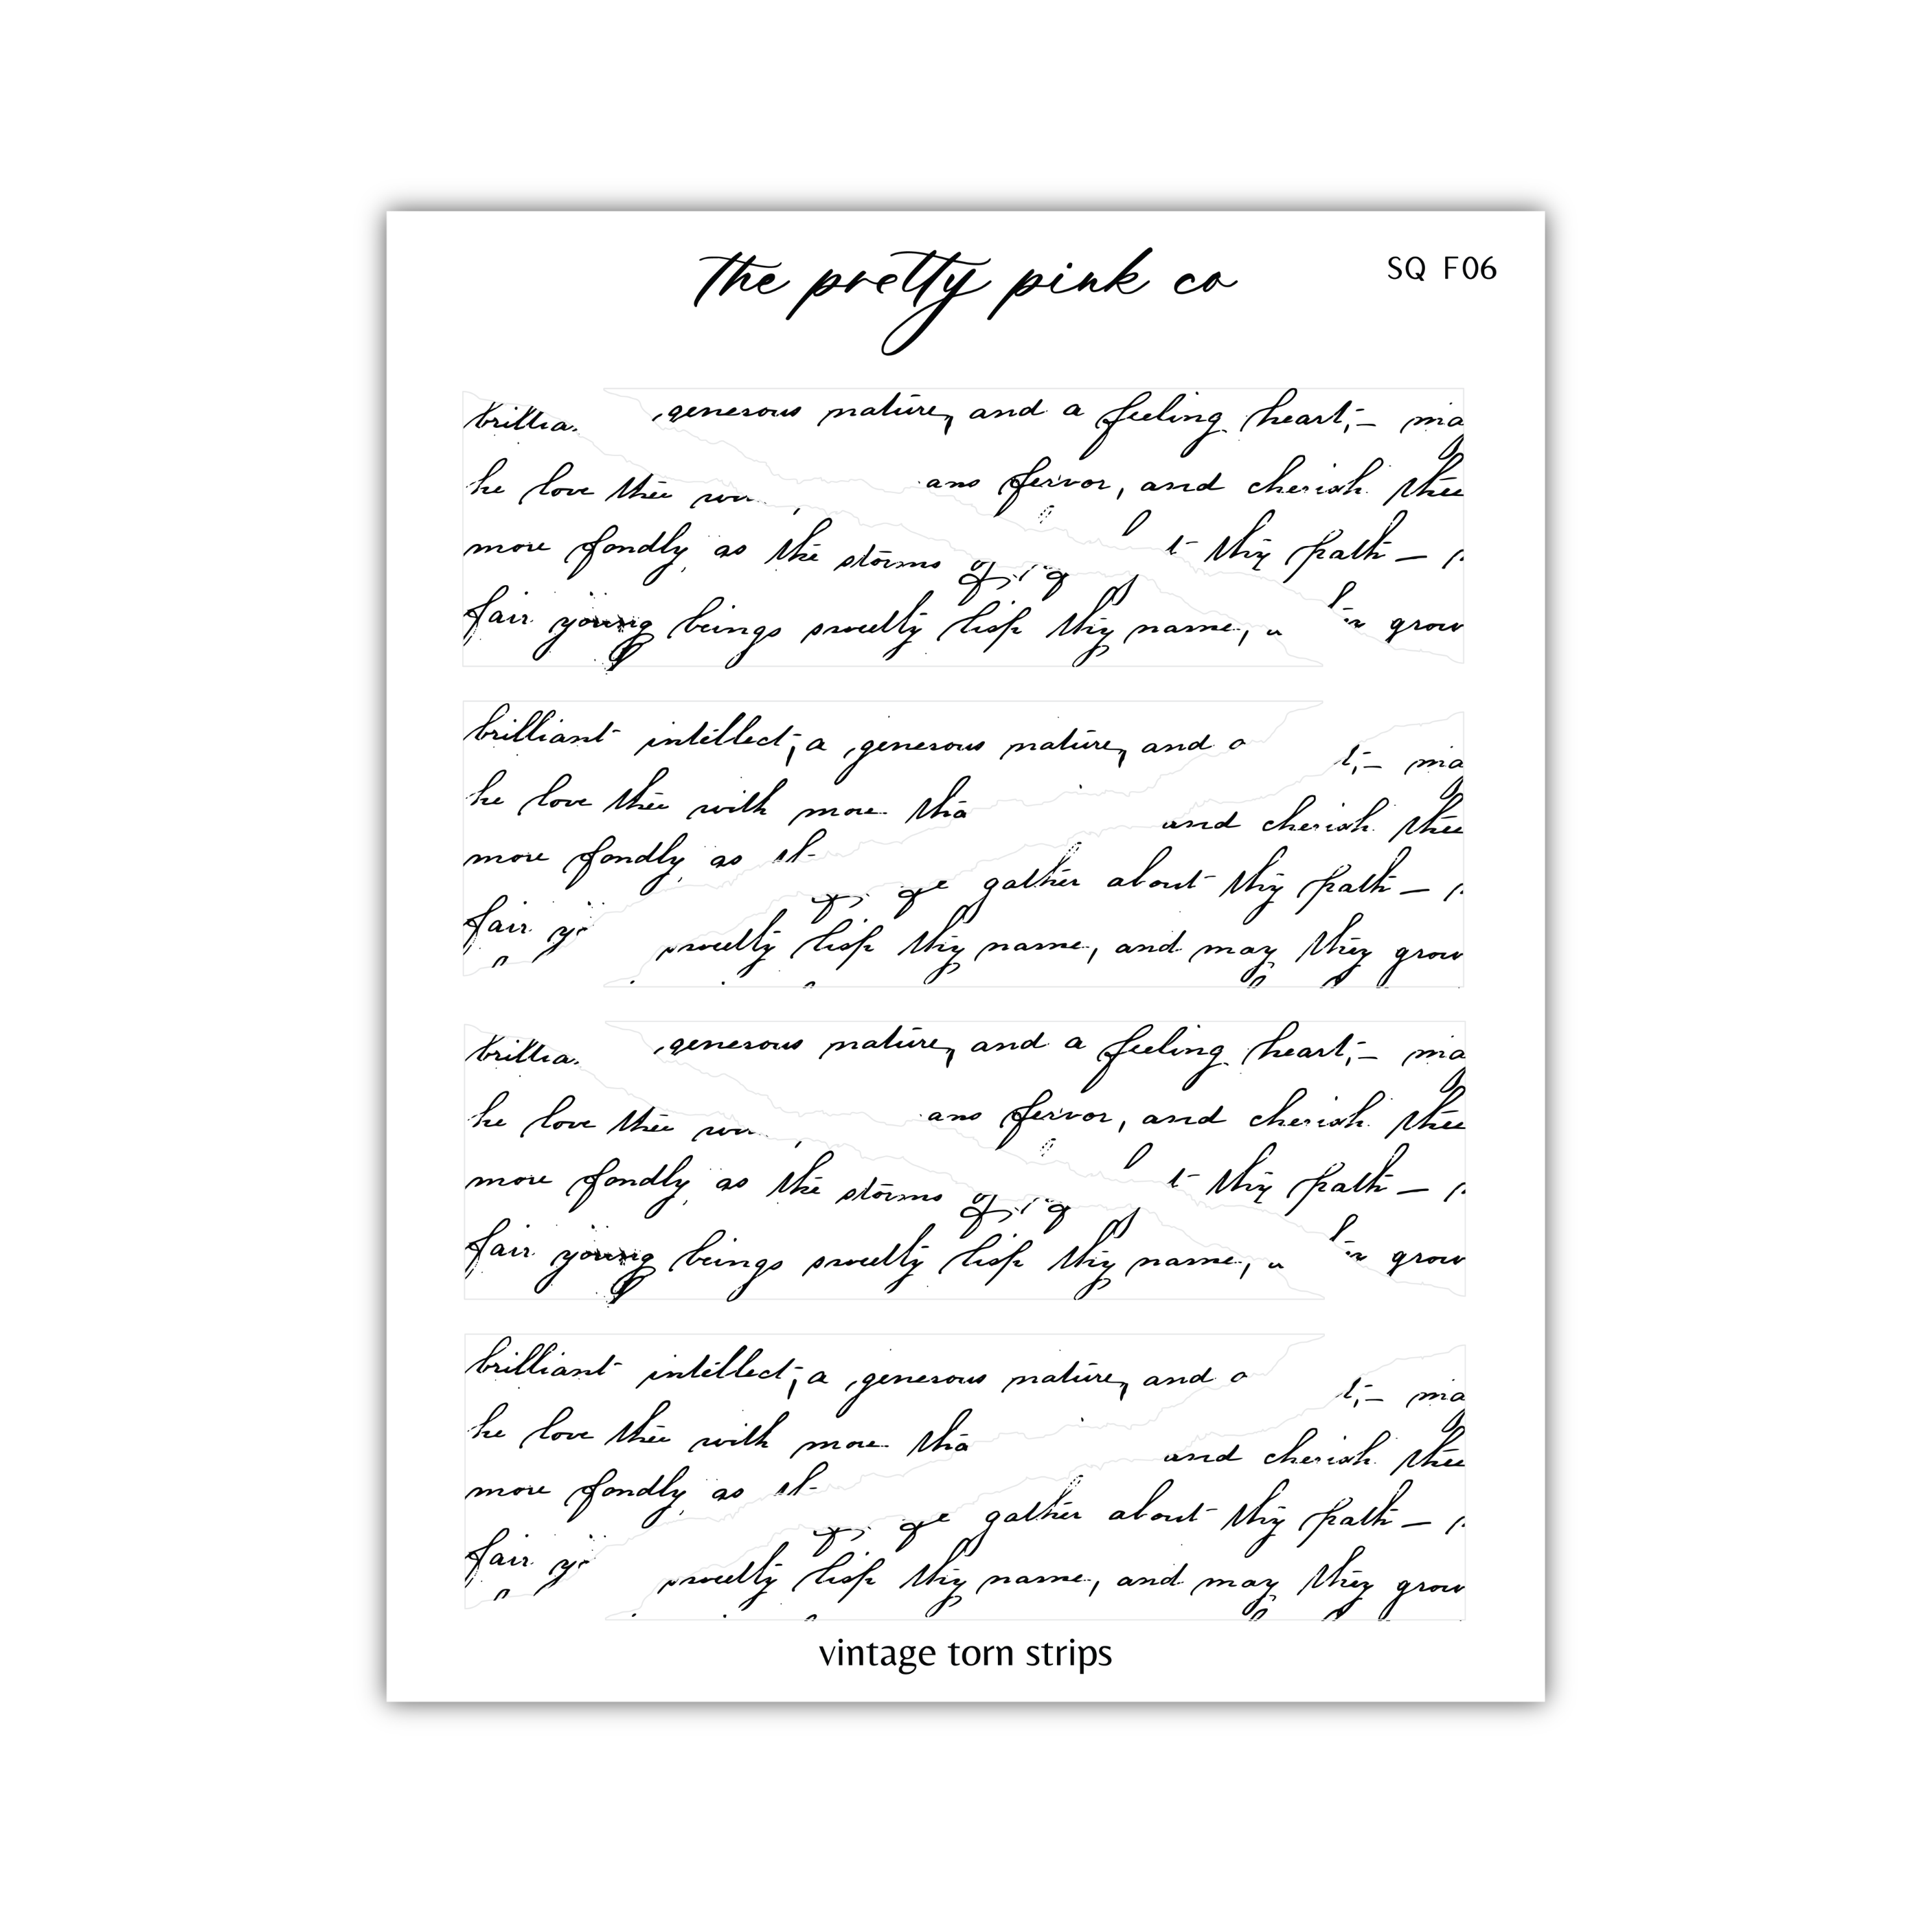 the pretty pink co
SQ F06
generous nature, and a feeling heart;–
he love thee
and fervor, and cherish thee
more fondly, as the storms of
thy path –
fair young beings sweetly lisp thy name,
grow
brilliant intellect; a generous nature, and
he love thee with more
and cherish thee
more fondly, as
gather about thy path –
fair
sweetly lisp thy name, and may they grow
generous nature, and a feeling heart;–
he love thee
and fervor, and cherish thee
more fondly, as the storms of
thy path –
fair young beings sweetly lisp thy name,
grow
brilliant intellect; a generous nature, and
he love thee with more
and cherish thee
more fondly, as
gather about thy path –
fair
sweetly lisp thy name, and may they grow
vintage torn strips